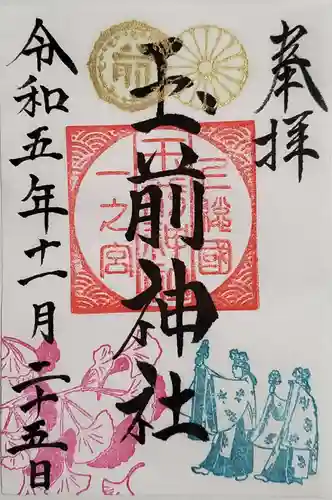 奉拝
上総國
玉前神社
一之宮
令和五年十一月二十五日